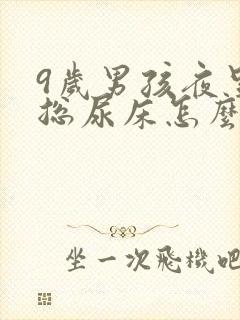 9歲男孩夜里
总尿床怎麼
坐一次飛機吧